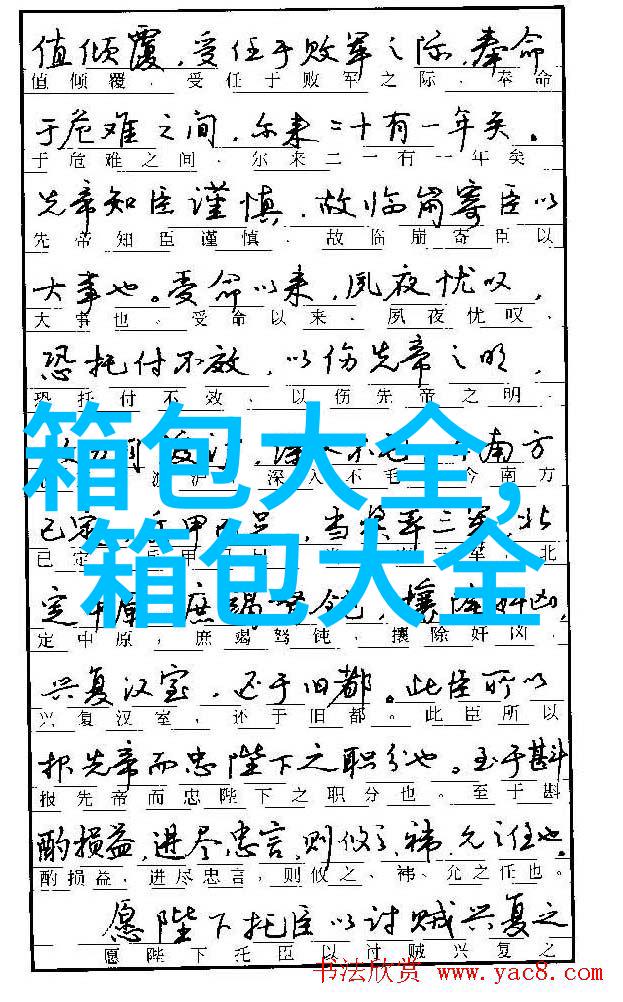 值倾覆，受任于败军之际，奉命
值倾覆，受任于败军之际，奉命
于危难之间，尔来二十有一年矣。
于危难之间，尔来二一有一年矣
先帝知臣谨慎，故临崩寄臣以
先帝知臣谨慎，故临崩寄臣以
大事也。受命以来，夙夜忧叹，
大事也。受命以来，夙夜忧叹，
恐托付不效，以伤先帝之明，
恐托付不效，以伤先帝之明，
南方
深入不毛，今南方
箱包大全,
已定，甲已足，当奖率三军，北
已定，北
箱包大全
定中原，庶竭驽钝，攘除奸凶，
定中原，庶竭驽钝，攘除奸凶，
兴复汉室，还于旧都。此臣所以
兴复汉室，还于旧都。此臣所以
报先帝而忠陛下之职分也。至于斟
报先帝而忠陛下之职分也。至于斟
酌损益，进尽忠言，则攸之、祎、允之任也。
酌损益，进尽忠言，则攸之、祎、允之任也。
愿陛下托臣以讨贼兴复之
愿陛下托臣以讨贼兴复之
书法欣赏 www.yac8.com